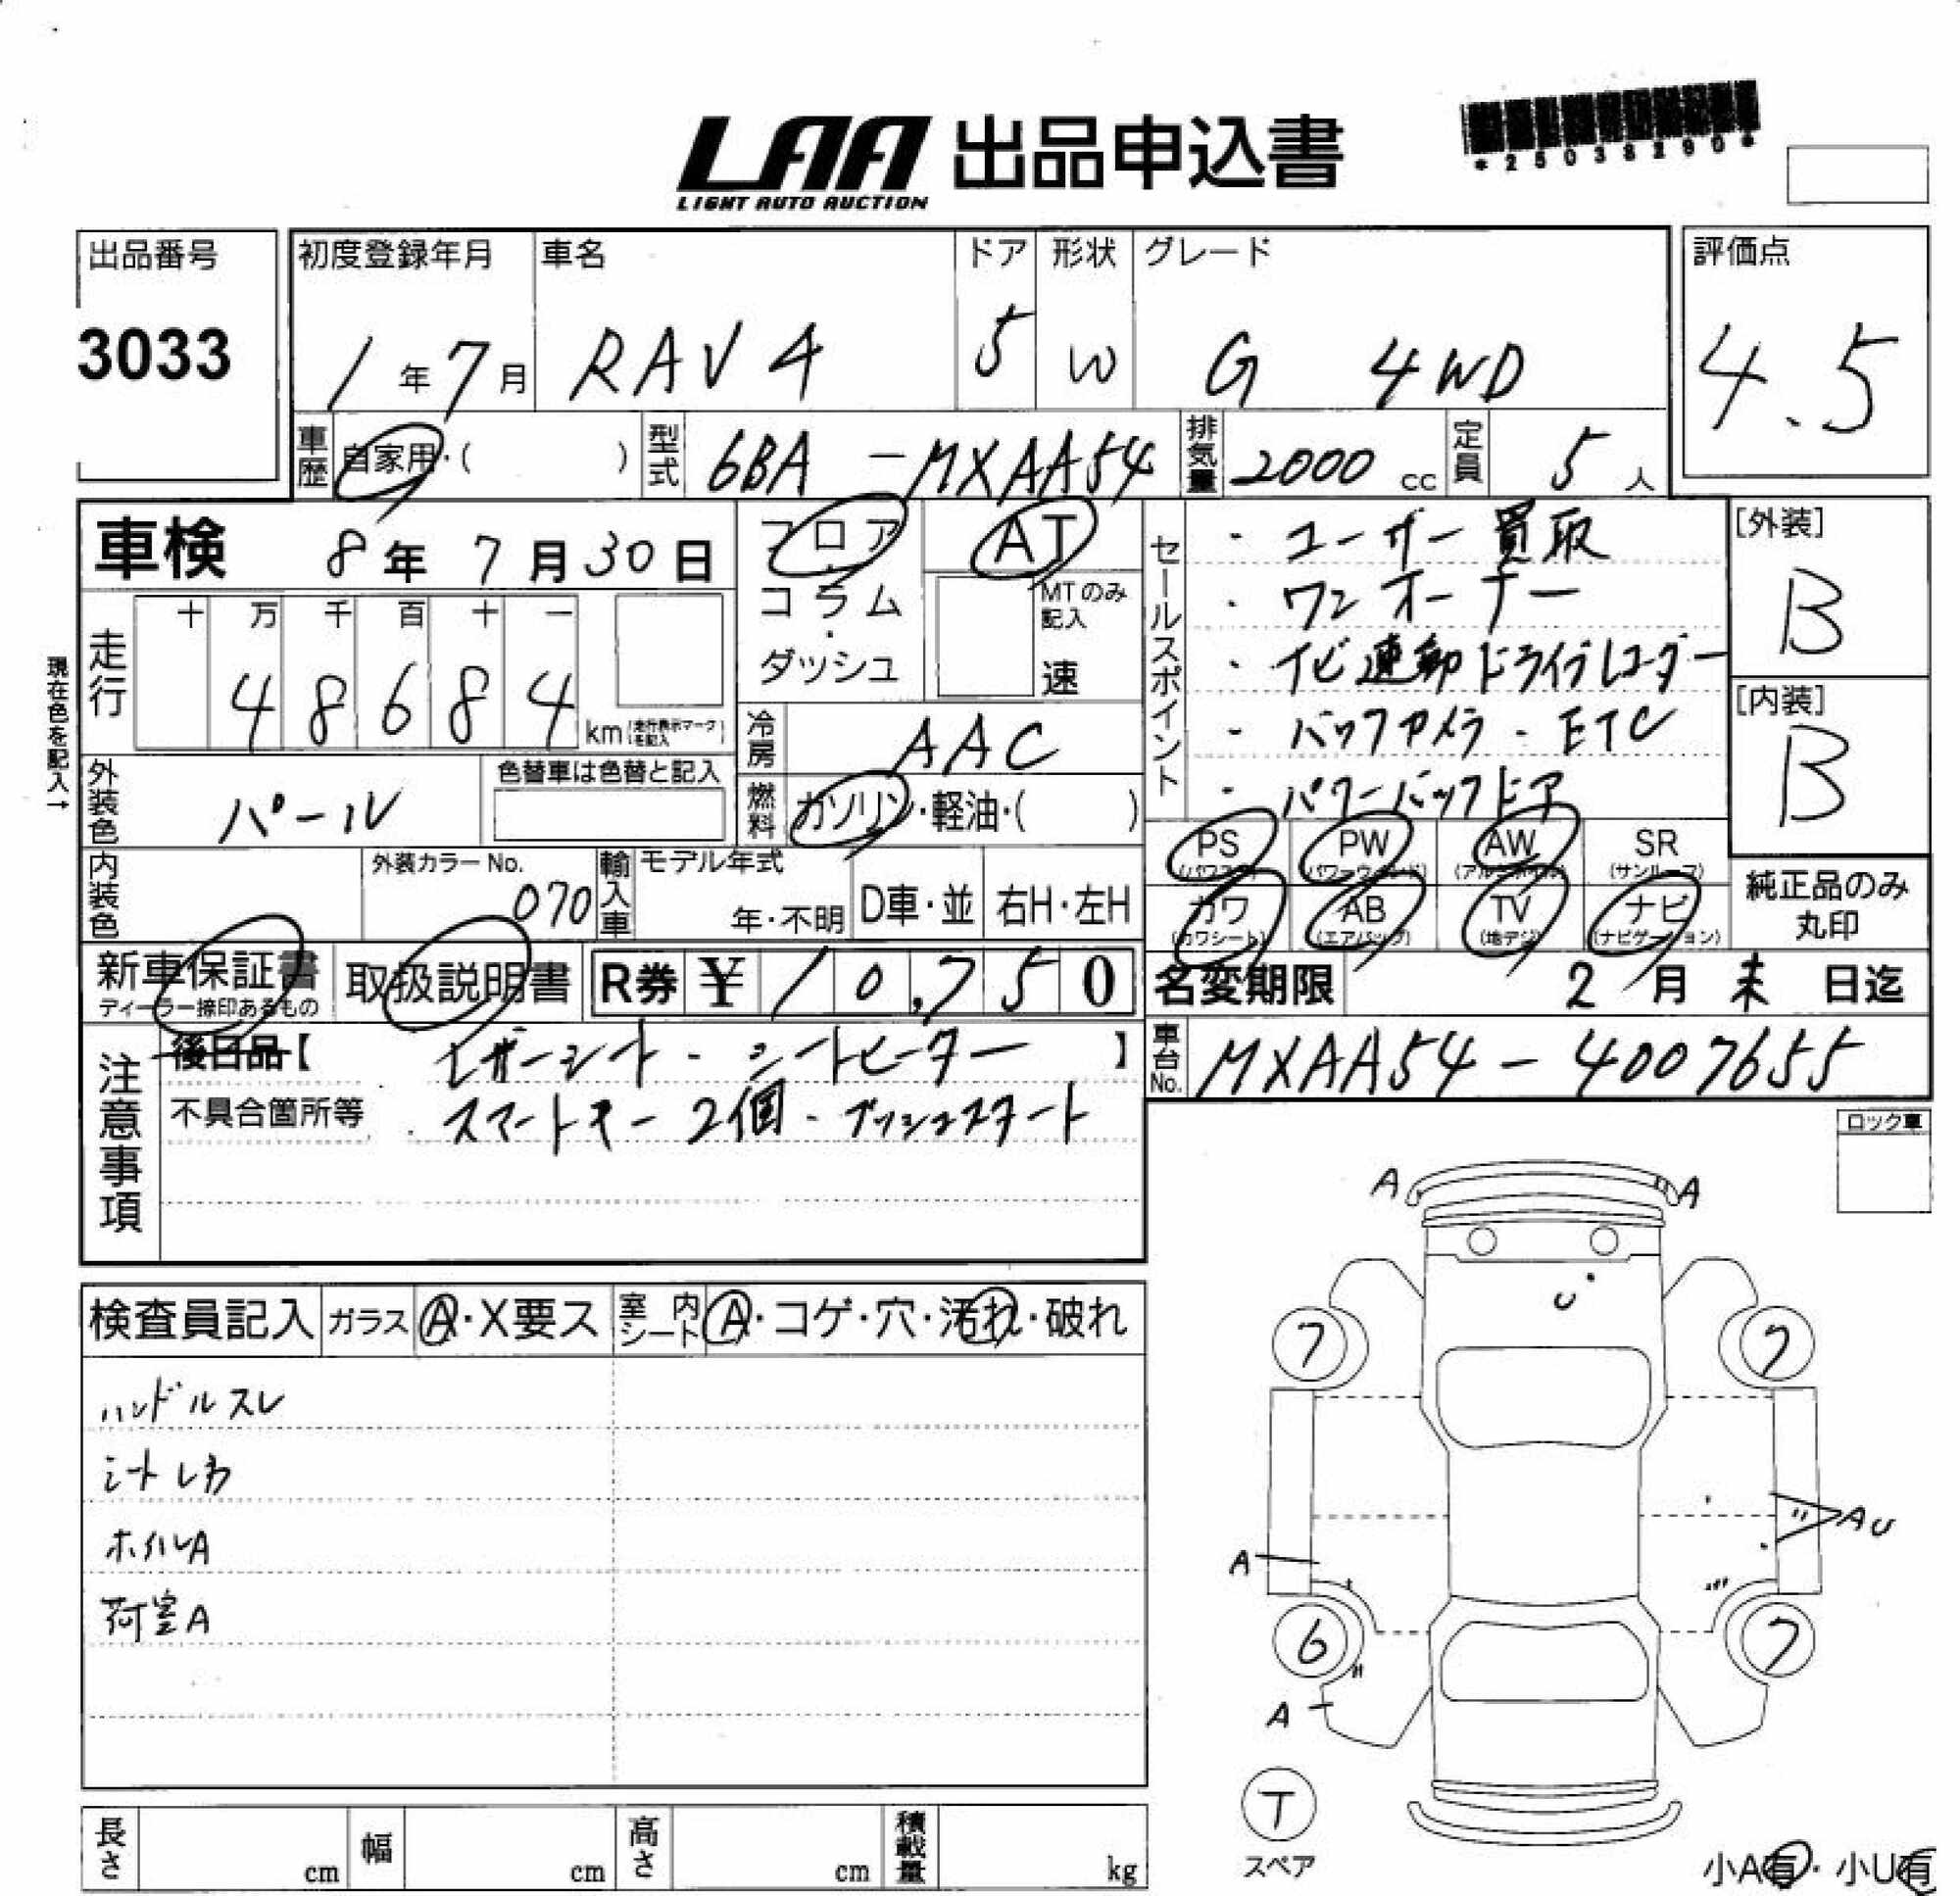 LAA 出品申込書
LIGHT AUTO AUCTION
*25038290*
出品番号
3033
初度登録年月
1年7月
車名
RAV4
ドア
5
形状
W
グレード
G 4WD
評価点
4.5
車歴
自家用・( )
型式
6BA-MXAA54
排気量
2000 cc
定員
5人
車検 8年7月30日
現在色を記入→
走行
十 万 千 百 十 一
4 8 6 8 4
km (走行表示マークを記入)
フロア・コラム・ダッシュ
AT
MTのみ記入
速
冷房
AAC
燃料
ガソリン・軽油・( )
外装色
パール
色替車は色替と記入
内装色
外装カラーNo.
070
輸入車
モデル年式
年・不明
D車・並
右H・左H
セールスポイント
・ユーザー買取
・ワンオーナー
・ナビ連動ドライブレコーダー
・バックカメラ・ETC
・パワーバックドア
[外装]
B
[内装]
B
PS (パワステ)
PW (パワーウィンド)
AW (アルミホイル)
SR (サンルーフ)
カワ (カワシート)
AB (エアバッグ)
TV (地デジ)
ナビ (ナビゲーション)
純正品のみ丸印
新車保証書
ディーラー捺印あるもの
取扱説明書
R券 ¥ 10,750
名変期限 2月末日迄
車台No.
MXAA54-4007655
注意事項
後日品【 レザーシート・シートヒーター 】
不具合箇所等 ・スマートキー2個・プッシュスタート
ロック車
検査員記入
ガラス Ⓐ・X要ス
室内シート Ⓐ・コゲ・穴・汚れ・破れ
ハンドルスレ
シートレカ
ホイルA
荷室A
A A
U
7 7
A U
A
6 7
A
T
スペア
小A有・小U有
長さ cm
幅 cm
高さ cm
積載量 kg